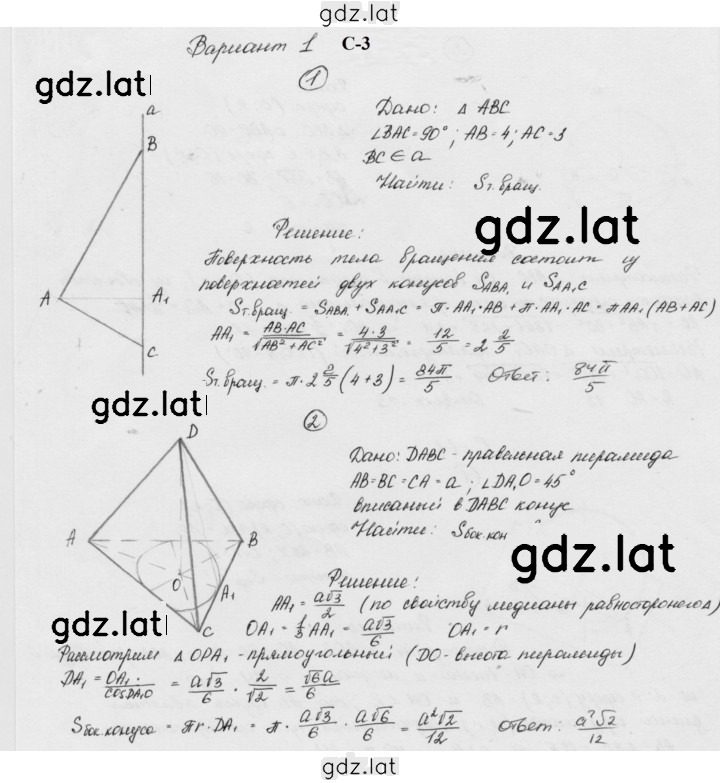 gdz.lat
Вариант 1 С-3
gdz.lat
1
a
B
A
A₁
C
Дано: △ ABC
∠BAC=90°; AB=4; AC=3
BC ∈ a
Найти: Sт.вращ.
gdz.lat
Решение:
Поверхность тела вращения состоит из
поверхностей двух конусов SABA₁ и SAA₁C
Sт.вращ. = SABA₁ + SAA₁C = π·AA₁·AB + π·AA₁·AC = πAA₁(AB+AC)
AA₁ = AB·AC/√(AB²+AC²) = 4·3/√(4²+3²) = 12/5 = 2 2/5
Sт.вращ. = π·2 2/5 (4+3) = 84π/5 Ответ: 84π/5
gdz.lat
2
D
A
B
O
A₁
C
Дано: DABC - правельная пирамида
AB=BC=CA=a; ∠DA₁O=45°
вписаный в DABC конус
Найти: Sбок.кон
gdz.lat
Решение:
AA₁ = a√3/2 (по свойству медианы равносторонего△)
OA₁ = 1/3 AA₁ = a√3/6 OA₁ = r
Рассмотрим △ ОРА₁ - прямоугольный (DO - высота пирамиды)
DA₁ = OA₁/cosDA₁O = a√3/6 · 2/√2 = √6a/6
Sбок.конуса = πr·DA₁ = π·a√3/6 · a√6/6 = a²√2/12 Ответ: a²√2/12
gdz.lat